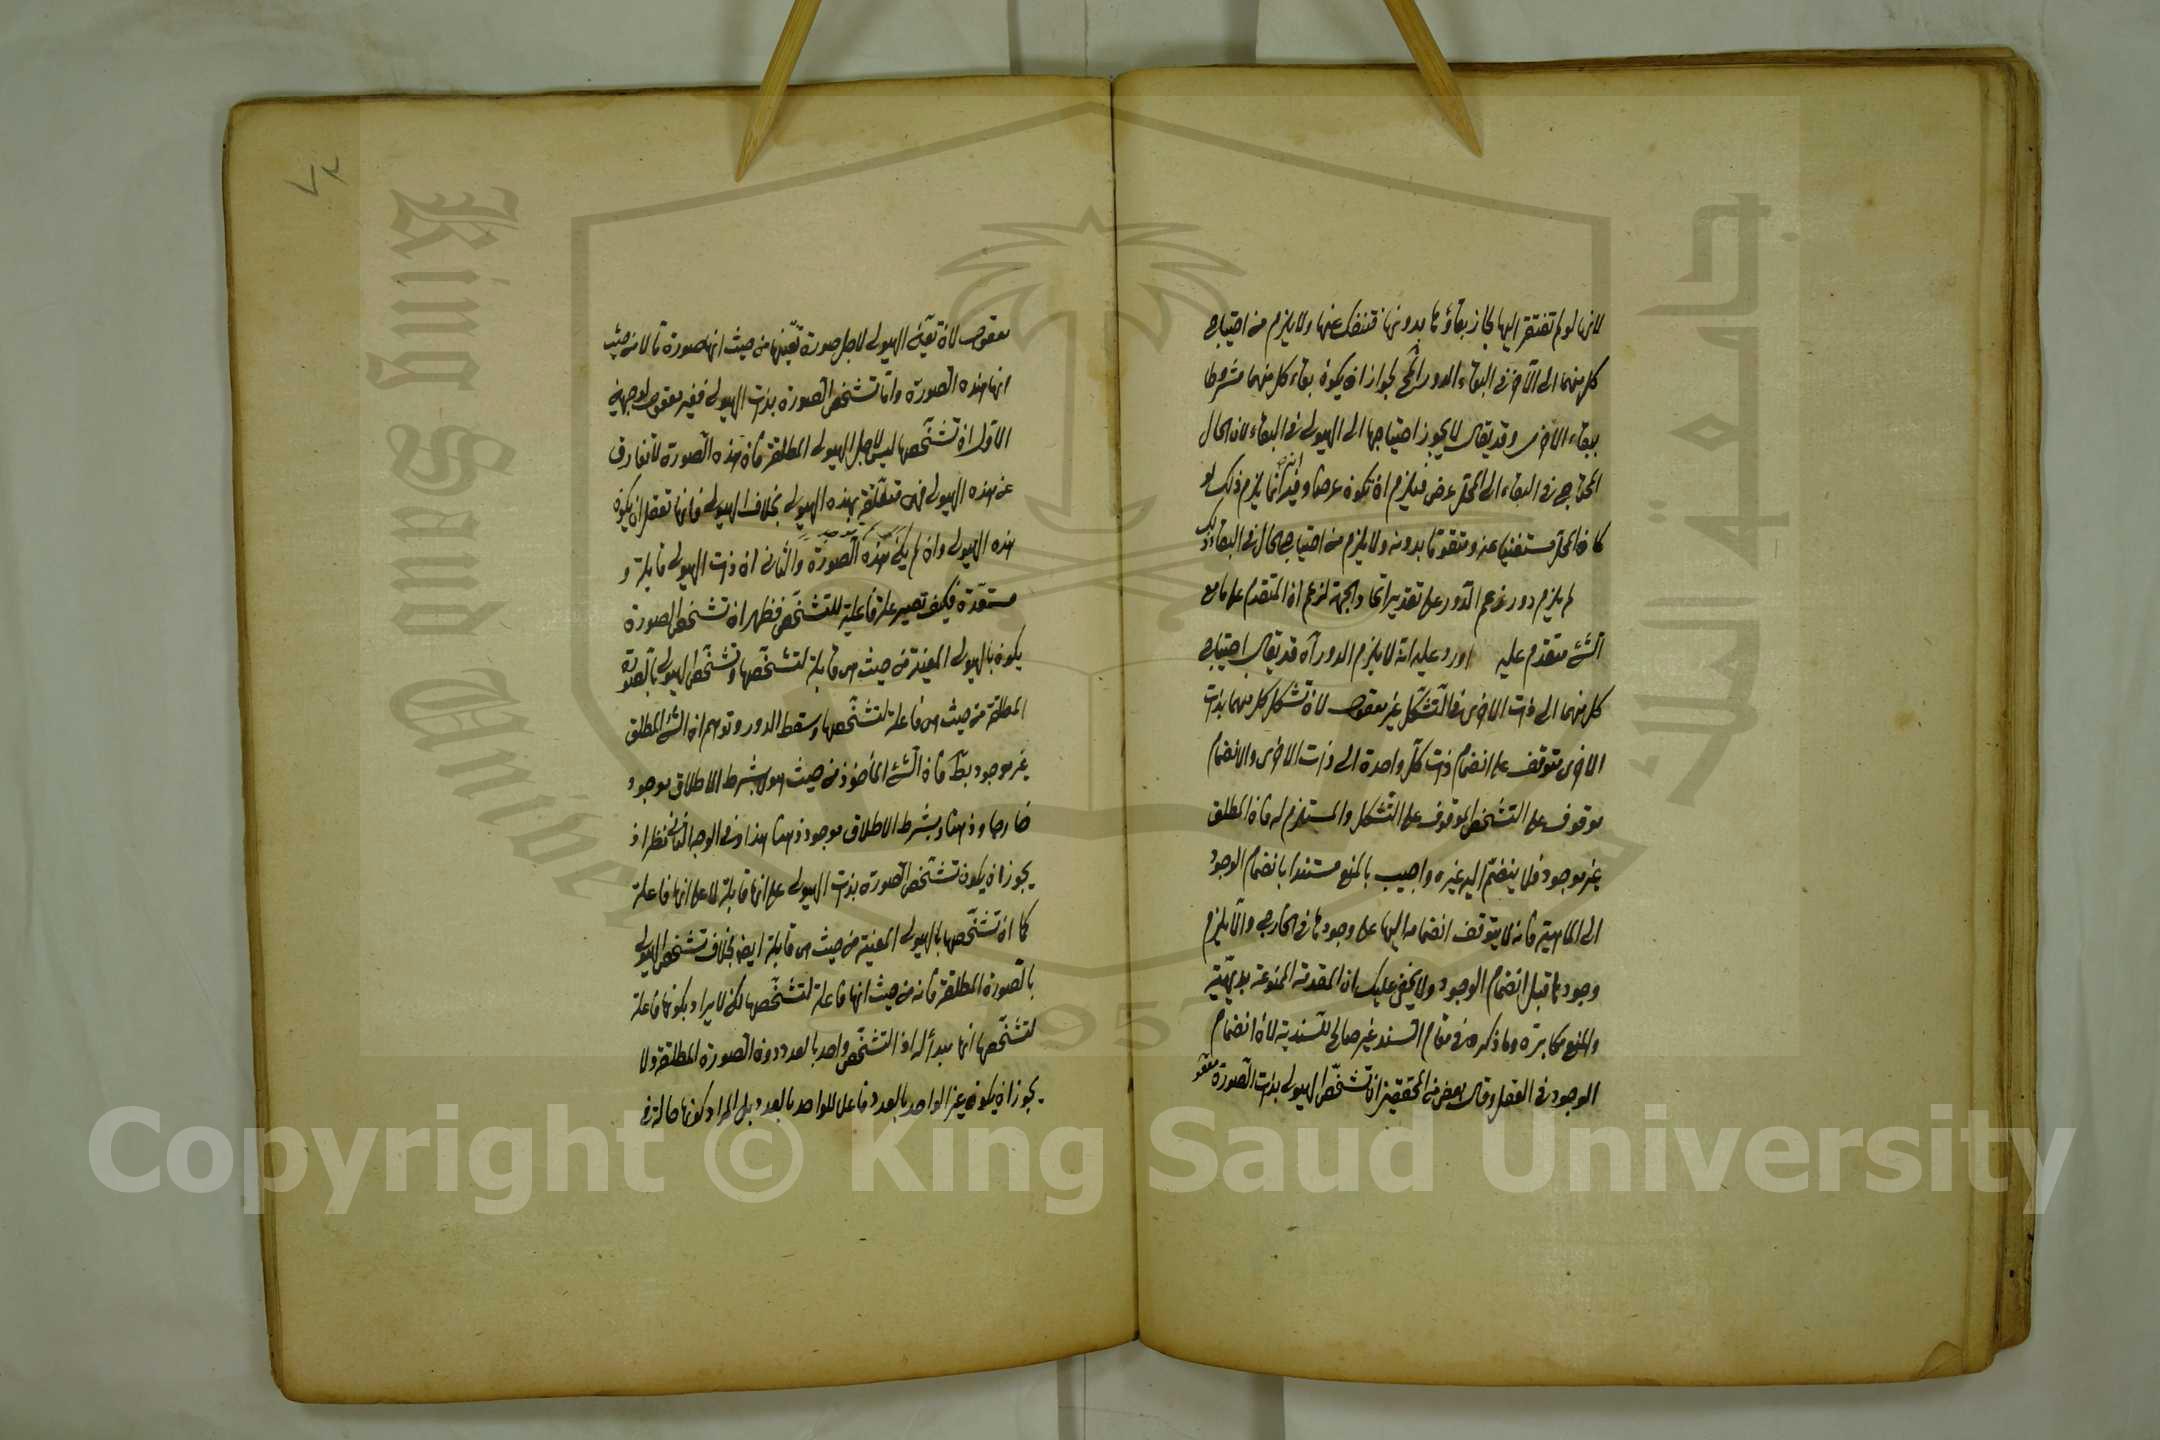 لانها لو لم تفتقر اليها لجاز بقاؤها بدونها فتنفك عنها ولا يلزم من احتياج
كل منهما الى الآخر في البقاء الدور المح لجواز ان يكون بقاء كل منهما مشروطا
ببقاء الاخرى وقد يقال لا يجوز احتياجها الى الهيولى في البقاء لان الحال
المحتاج في البقاء الى المحل عرض فيلزم ان تكون عرضا وفيه انه انما يلزم ذلك لو
كان المحل مستغنيا عنه ومتقوما بدونه ولا يلزم من احتياج الحال في البقاء ذلك
لم يلزم دور نزعم الدور على تقدير اتحاد الجهة لزعم ان المتقدم على ما مع
الشئ متقدم عليه اورد عليه انه لا يلزم الدور آه قد يقال احتياج
كل منهما الى ذات الاخرى في التشكل غير معقول لان تشكل كل منهما بذات
الاخرى متوقف على انضمام ذات كل واحدة الى ذات الاخرى والانضمام
موقوف على التشخص الموقوف على التشكل والمستلزم له فان المطلق
غير موجود فلا ينضم اليه غيره واجيب بالمنع مستندا بانضمام الوجود
الى الماهية فانه لا يتوقف انضمامه اليها على وجودها في الخارج والا يلزم
وجودها قبل انضمام الوجود ولا يخفى عليك ان المقدمة الممنوعة بديهية
والمنع مكابرة وما ذكره في مقام السند غير صالح للسندية لان انضمام
الوجود في العقل وقال بعض من المحققين ان تشخص الهيولى بذات الصورة معقو
معقول لان تعين الهيولى لاجل صورة تعينها من حيث انها صورة ما لا من حيث
انها هذه الصورة واما تشخص الصورة بذات الهيولى فغير معقول لوجهين
الاول ان تشخصها ليس لاجل الهيولى المطلقة فان هذه الصورة لا تفارق
عن هذه الهيولى فهي متعلقة بهذه الهيولى بخلاف الهيولى فانها تعقل ان يكون
هذه الهيولى وان لم يكن هذه الصورة والثاني ان ذات الهيولى قابلة و
مستعدة فكيف تصير علة فاعلية للتشخص فظهر ان تشخص الصورة
يكون بالهيولى المعينة من حيث هي قابلة لتشخصها وتشخص الهيولى بالصورة
المطلقة من حيث هي فاعلة لتشخصها وسقط الدور وتوهم ان الشئ المطلق
غير موجود بط فان الشئ المأخوذ من حيث هو لا بشرط الاطلاق موجود
خارجا وذهنا وبشرط الاطلاق موجود ذهنا هذا وفي الوجه الثاني نظر اذ
يجوز ان يكون تشخص الصورة بذات الهيولى على انها قابلة لا على انها فاعلة
كما ان تشخصها بالهيولى المعينة من حيث هي قابلة ايض بخلاف تشخص الهيولى
بالصورة المطلقة فانه من حيث انها فاعلة لتشخصها لكن لا يراد بكونها فاعلة
لتشخصها انها مبدأ له اذ التشخص واحد بالعدد دون الصورة المطلقة ولا
يجوز ان يكون غير الواحد بالعدد فاعلا للواحد بالعدد بل المراد كونها حالة في
Copyright © King Saud University